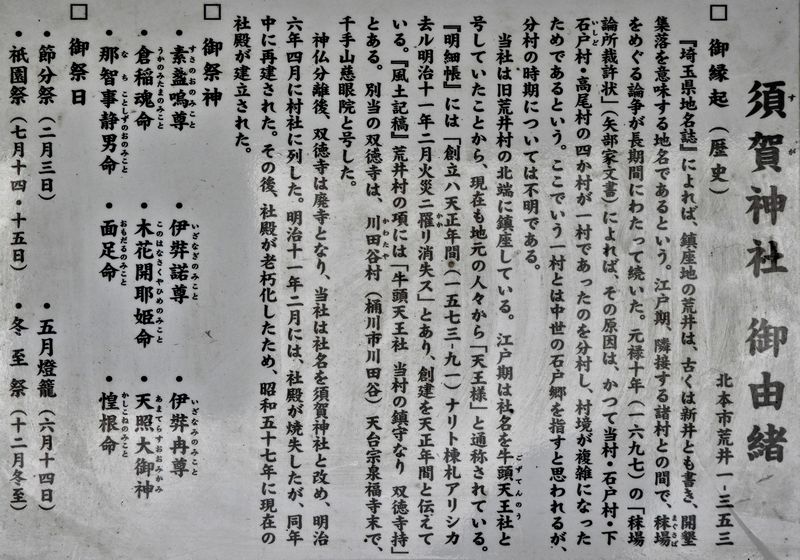 須賀神社 御由緒
北本市荒井一-三五三
□ 御縁起(歴史)
『埼玉県地名誌』によれば、鎮座地の荒井は、古くは新井とも書き、開墾
集落を意味する地名であるという。江戸期、隣接する諸村との間で、秣場
をめぐる論争が長期間にわたって続いた。元禄十年(一六九七)の「秣場
論所裁許状」(矢部家文書)によれば、その原因は、かつて当村・石戸村・下
石戸村・高尾村の四か村が一村であったのを分村し、村境が複雑になった
ためであるという。ここでいう一村とは中世の石戸郷を指すと思われるが、
分村の時期については不明である。
当社は旧荒井村の北端に鎮座している。江戸期は社名を牛頭天王社と
号していたことから、現在も地元の人々から「天王様」と通称されている。
『明細帳』には「創立ハ天正年間(一五七三-九一)ナリト棟札アリシカ
去ル明治十一年二月火災ニ罹リ消失ス」とあり、創建を天正年間と伝えて
いる。『風土記稿』荒井村の項には「牛頭天王社 当村の鎮守なり 双徳寺持」
とある。別当の双徳寺は、川田谷村(桶川市川田谷)天台宗泉福寺末で、
千手山慈眼院と号した。
神仏分離後、双徳寺は廃寺となり、当社は社名を須賀神社と改め、明治
六年四月に村社に列した。明治十一年二月には、社殿が焼失したが、同年
中に再建された。その後、社殿が老朽化したため、昭和五十七年に現在の
社殿が建立された。
□ 御祭神
・素盞嗚尊 ・伊弉諾尊 ・伊弉冉尊
・倉稲魂命 ・木花開耶姫命 ・天照大御神
・那智事静男命 ・面足命 ・惶根命
□ 御祭日
・節分祭(二月三日) ・五月燈籠(六月十四日)
・祇園祭(七月十四・十五日) ・冬至祭(十二月冬至)